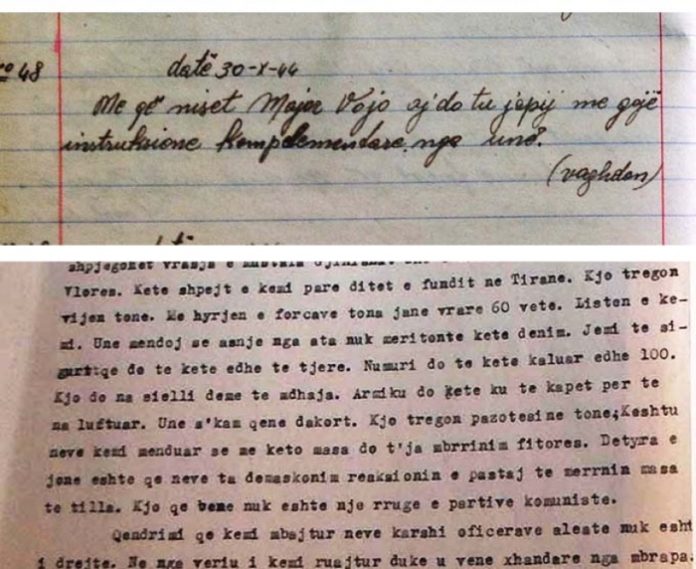 48
datë 30-X-44
Me që niset Major Vojo aj do tu japij me gojë
instruksione komplementare nga unë.
(vaghdon)
shpjegohet vrasja e
Vlores. Kete shpejt e kemi pare ditet e fundit ne Tirane. Kjo tregon
vijen tone. Me hyrjen e forcave tona jane vrare 60 vete. Listen e ke-
mi. Une mendoj se asnje nga ata nuk meritonte kete denim. Jemi te si-
gurt qe do te kete edhe te tjere. Numuri do te kete kaluar edhe 100.
Kjo do na sielli deme te mdhaja. Armiku do kete ku te kapet per te
na luftuar. Une s'kam qene dakort. Kjo tregon pazotesine tone; Keshtu
neve kemi menduar se me keto masa do t'ja mbrrinim fitores. Detyra e
jone eshte qe neve ta demaskonim reaksionin e pastaj te merrnim masa
te tilla. Kjo qe beme nuk eshte nje rruge e partive komuniste.
Qendrimi qe kemi mbajtur neve karshi oficerave aleate nuk esht
i drejte. Ne nga veriu i kemi ruajtur duke u vene xhandare nga mbrapa.